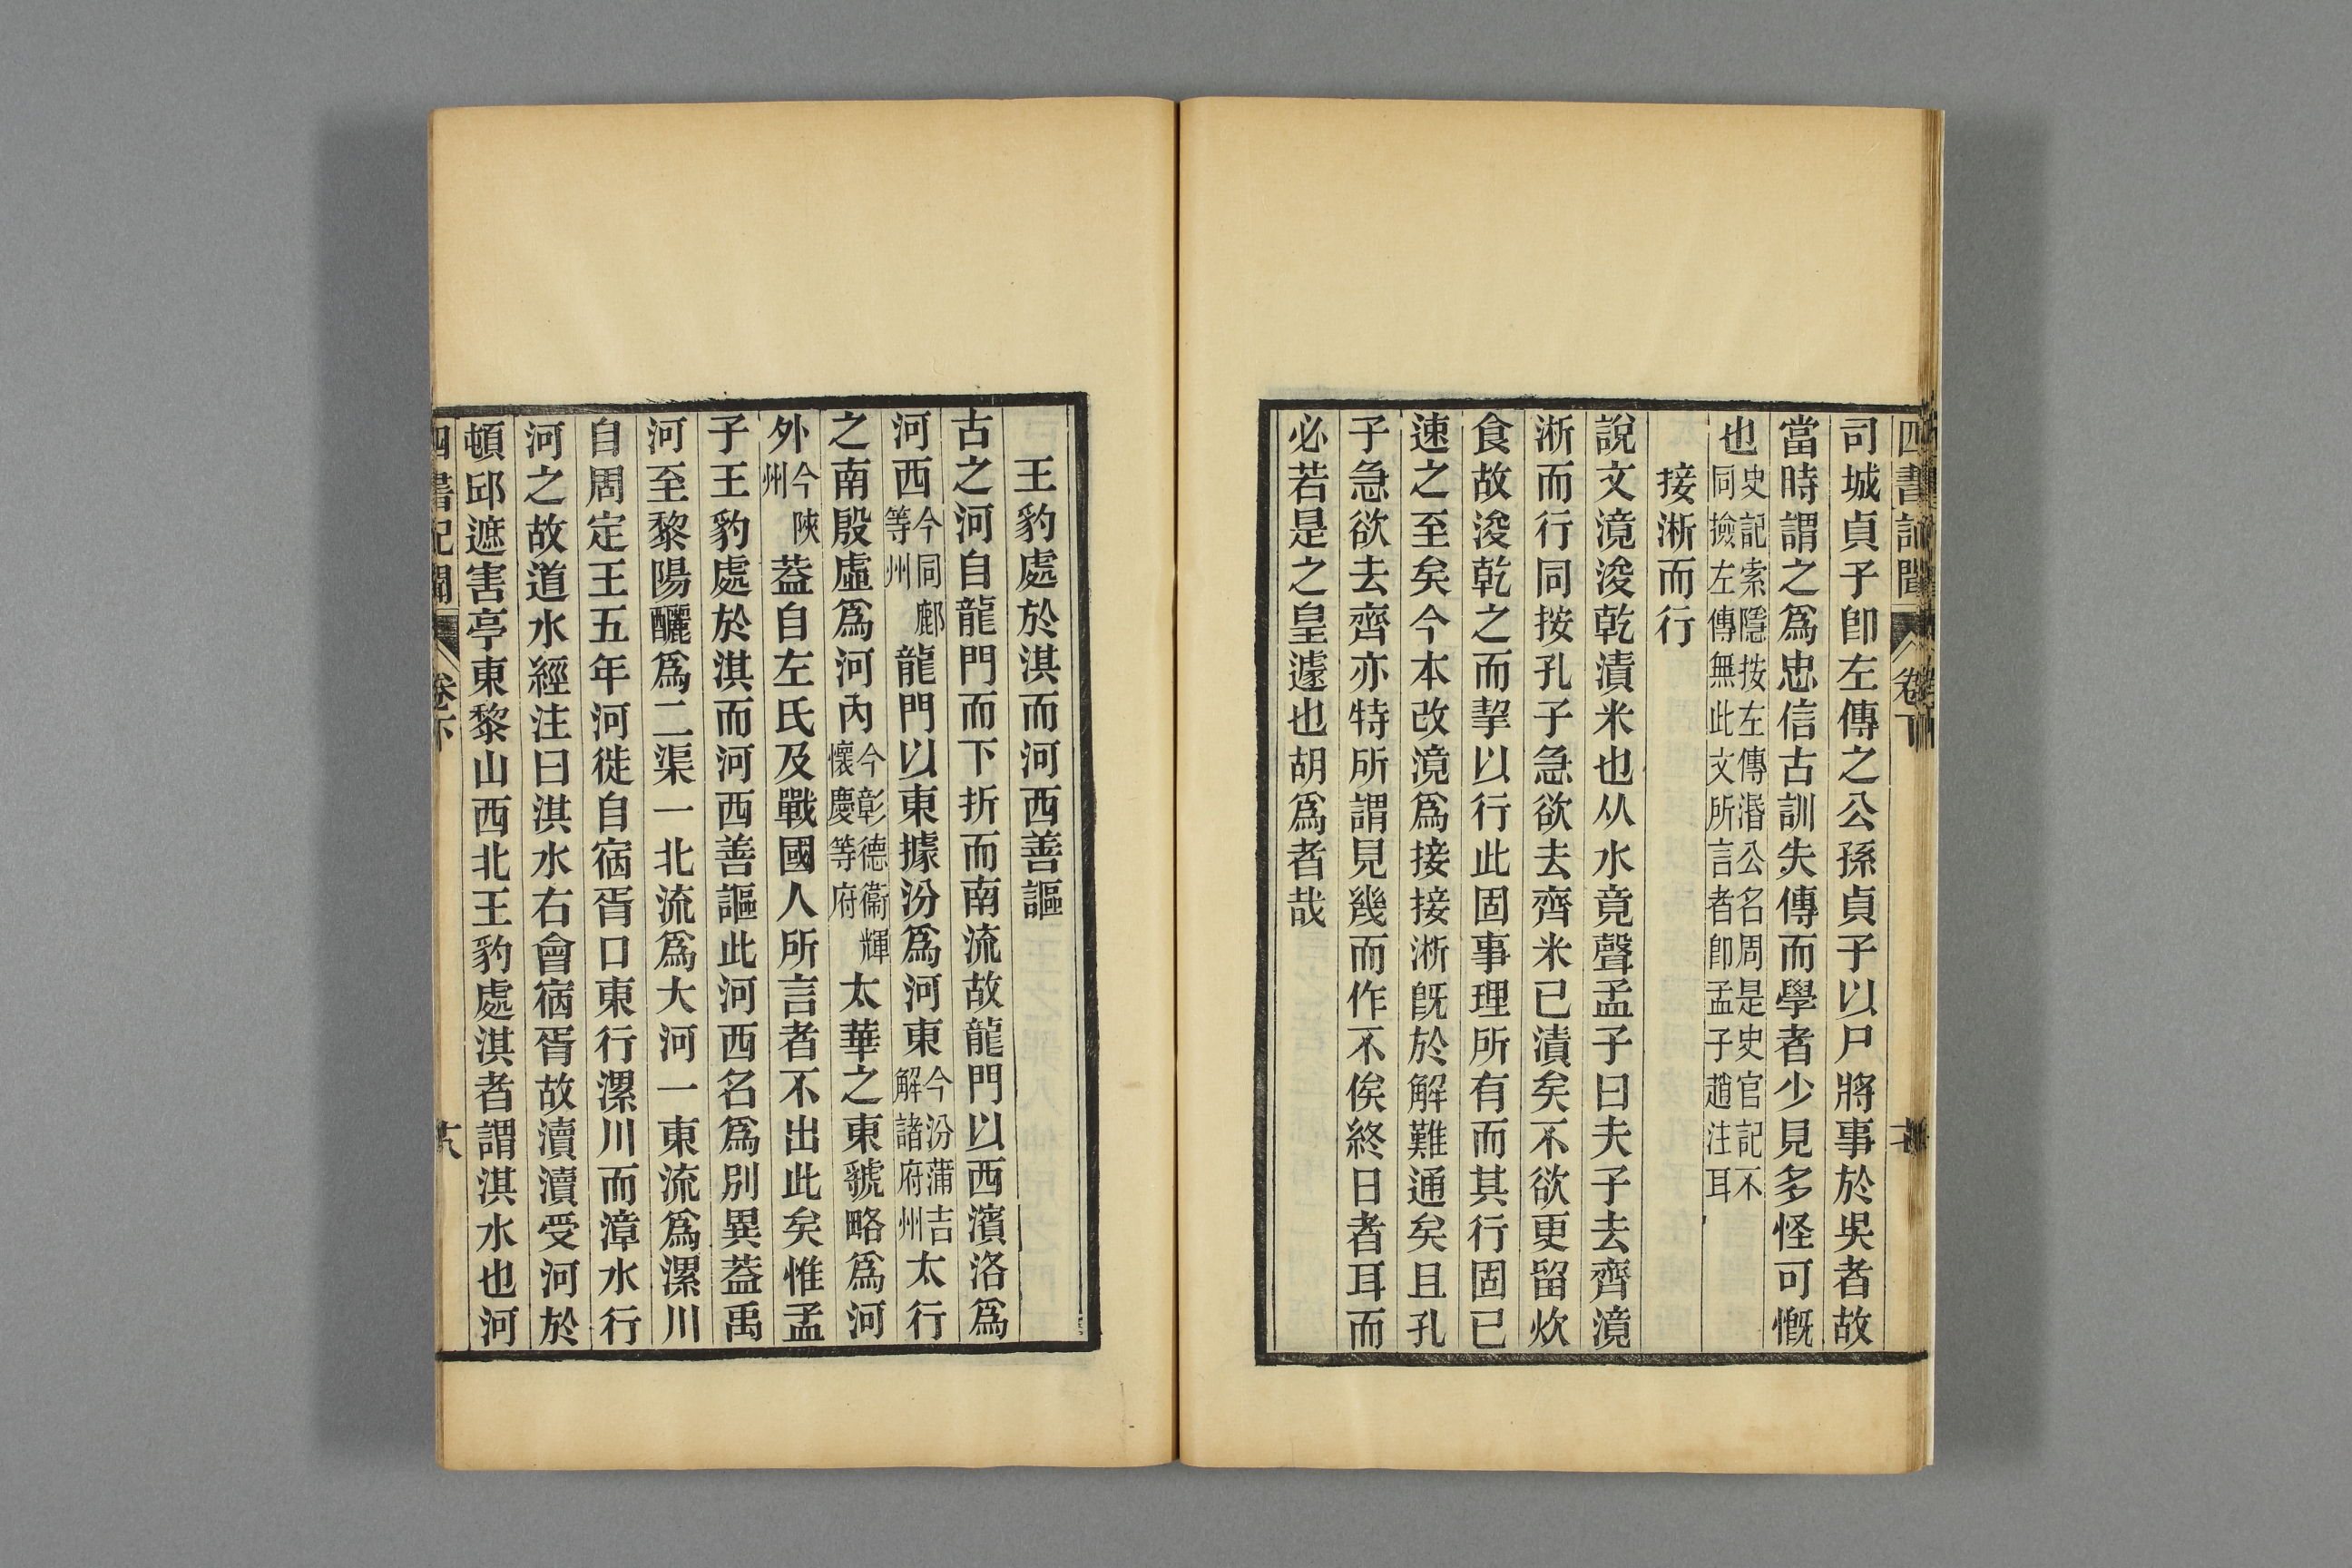 司城貞子卽左傳之公孫貞子以尸將事於吳者故
當時謂之爲忠信古訓失傳而學者少見多怪可慨
也史記索隱按左傳湣公名周是史官記不
同撿左傳無此文所言者卽孟子趙注耳
接淅而行
說文滰浚乾漬米也从水竟聲孟子曰夫子去齊滰
淅而行同按孔子急欲去齊米已漬矣不欲更留炊
食故浚乾之而挈以行此固事理所有而其行固已
速之至矣今本改滰爲接接淅旣於解難通矣且孔
子急欲去齊亦特所謂見幾而作不俟終日者耳而
必若是之皇遽也胡爲者哉
王豹處於淇而河西善謳
古之河自龍門而下折而南流故龍門以西濱洛爲
河西今同鄜
等州龍門以東據汾爲河東今汾蒲吉
解諸府州太行
之南殷虛爲河內今彰德衞輝
懷慶等府太華之東虢略爲河
外今陝
州葢自左氏及戰國人所言者不出此矣惟孟
子王豹處於淇而河西善謳此河西名爲別異葢禹
河至黎陽釃爲二渠一北流爲大河一東流爲漯川
自周定王五年河徙自宿胥口東行漯川而漳水行
河之故道水經注曰淇水右會宿胥故瀆瀆受河於
頓邱遮害亭東黎山西北王豹處淇者謂淇水也河